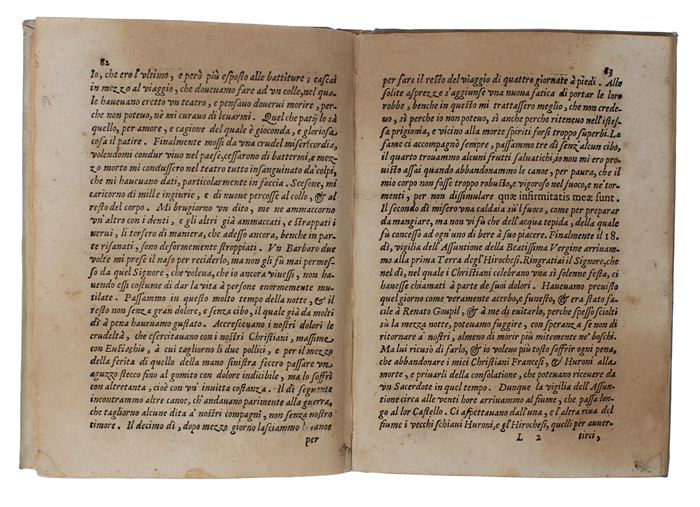 82
Io, che ero l'ultimo, e però più esposto alle battiture; cascai
in mezzo al viaggio, che dovevamo fare ad vn colle, nel qua-
le haueuamo eretto vn teatro, e pensauo douerui morire, per-
che non poteuo, nè mi curauo di leuarmi. Quel che patij lo sà
quello, per amore, e cagione del quale è gioconda, e gloriosa
cosa il patire. Finalmente mossi da vna crudel misericordia,
volendomi condur viuo nel paese, cessarono di battermi, e mez-
zo morto mi condussero nel teatro tutto insanguinato da' colpi,
che mi haueuano dati, particolarmente in faccia. Scesone, mi
caricorno di mille ingiurie, e di nuoue percosse al collo, & al
resto del corpo. Mi brugiorno vn dito, me ne ammaccorno
vn'altro con i denti, e gli altri già ammaccati, e strappati i
nerui, li torsero di maniera, che adesso ancora, benche in par-
te risanati, sono deformemente stroppiati. Vn Barbaro due
volte mi prese il naso per reciderlo, ma non gli fù mai permes-
so da quel Signore, che voleua, che io ancora viuessi, non ha-
uendo essi costume di dar la vita à persone enormemente mu-
tilate. Passammo in questo molto tempo della notte, & il
resto non senza gran dolore, e senza cibo, il quale già da molti
dì à pena haueuamo gustato. Accresceuano i nostri dolori le
crudeltà, che esercitauano con i nostri Christiani, massime
con Eustachio, à cui tagliorno li due pollici, e per il mezzo
della ferita di quello della mano sinistra fecero passare vn
aguzzo stecco sino al gomito con dolore indicibile, ma lo soffrì
con altretanta, cioè con vn' inuitta costanza. Il dì seguente
incontrammo altre canoe, ch'andauano parimente alla guerra,
che tagliorno alcune dita à nostri compagni, non senza nostro
timore. Il decimo dì, dopo mezzo giorno lasciammo le canoe
per
83
per fare il resto del viaggio di quattro giornate à piedi. Alle
solite asprezze s'aggiunse vna nuoua fatica di portar le loro
robbe, benche in questo mi trattassero meglio, che non crede-
uo, sì perche io non poteuo, sì anche perche riteneuo nell'istes-
sa prigionia, e vicino alla morte spiriti forse troppo superbi. La
fame ci accompagnò sempre, passammo tre dì senz'alcun cibo,
il quarto trouammo alcuni frutti saluatichi, io non mi ero proui-
sto assai quando abbandonammo le canoe, per paura, che il
mio corpo non fosse troppo robusto, e vigoroso nel fuoco, e ne' tor-
menti, per non dissimulare quæ infirmitatis meæ sunt.
Il secondo dì misero vna caldaia sù'l fuoco, come per preparar
da mangiare, ma non vi fù che dell'acqua tepida, della quale
fù concesso ad ogni vno di bere à suo piacere. Finalmente il 18.
dì, vigilia dell'Assuntione della Beatissima Vergine arriuam-
mo alla prima Terra degl' Hirochesi. Ringratiai il Signore, che
nel dì, nel quale i Christiani celebrano vna sì solenne festa, ci
hauesse chiamati à parte de suoi dolori. Haueuamo preuisto
quel giorno come veramente acerbo, e funesto, & era stato faci-
le à Renato Goupil, & à me di euitarlo, perche spesso sciolti
sù la mezza notte, poteuamo fuggire, con speranza se non di
ritornare à nostri, almeno di morir più mitemente ne' boschi.
Ma lui ricusò di farlo, & io voleuo più tosto soffrir ogni pena,
che abbandonare i miei Christiani Francesi, & Huroni alla
morte, e priuarli della consolatione, che poteuano riceuere da
vn Sacerdote in quel tempo. Dunque la vigilia dell' Assun-
tione circa alle venti hore arriuammo al fiume, che passa lon-
go al lor Castello. Ci aspettauano dall'una, e l'altra riua del
fiume i vecchi schiaui Huroni, e gl'Hirochesi, quelli per auuer-
L 2
tirci,